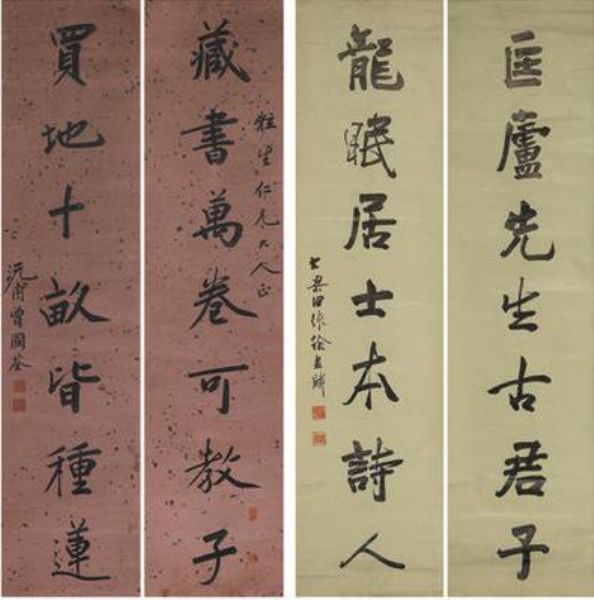 匡廬先生古君子
龍眠居士本詩人
大梁
生仁兄大人正
藏書萬卷可教子
買地十畝皆種蓮
沅甫曾國荃